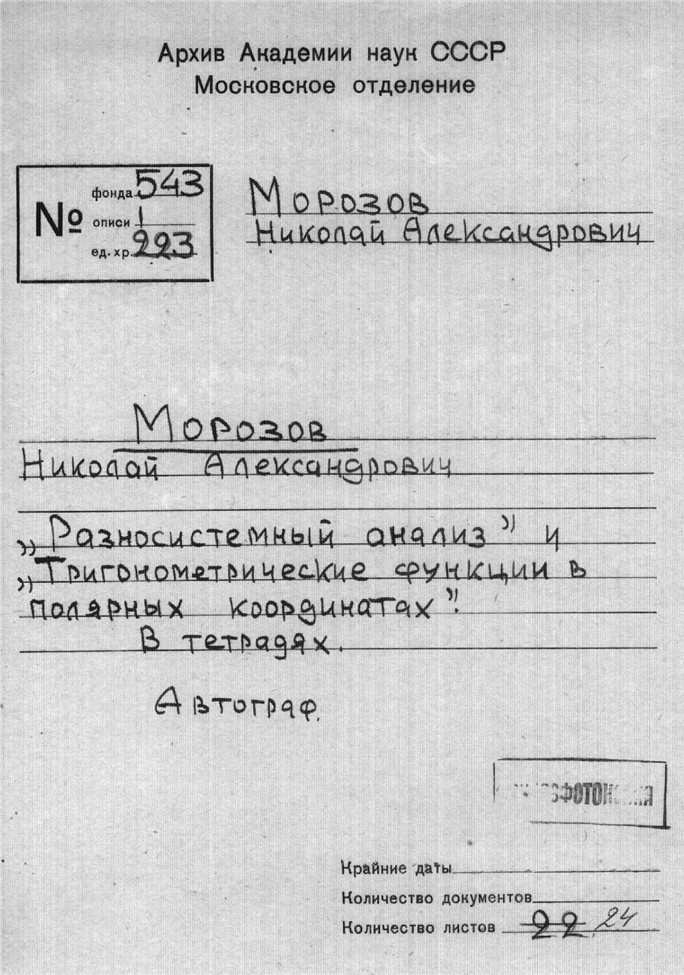 Архив Академии наук СССР
Московское отделение
№
фонда 543
описи 1
ед. хр. 223
Морозов
Николай Александрович
Морозов
Николай Александрович
„Разносистемный анализ” и
„Тригонометрические функции в
полярных координатах”.
В тетрадях.
Автограф.
Крайние даты
Количество документов
Количество листов 22 24